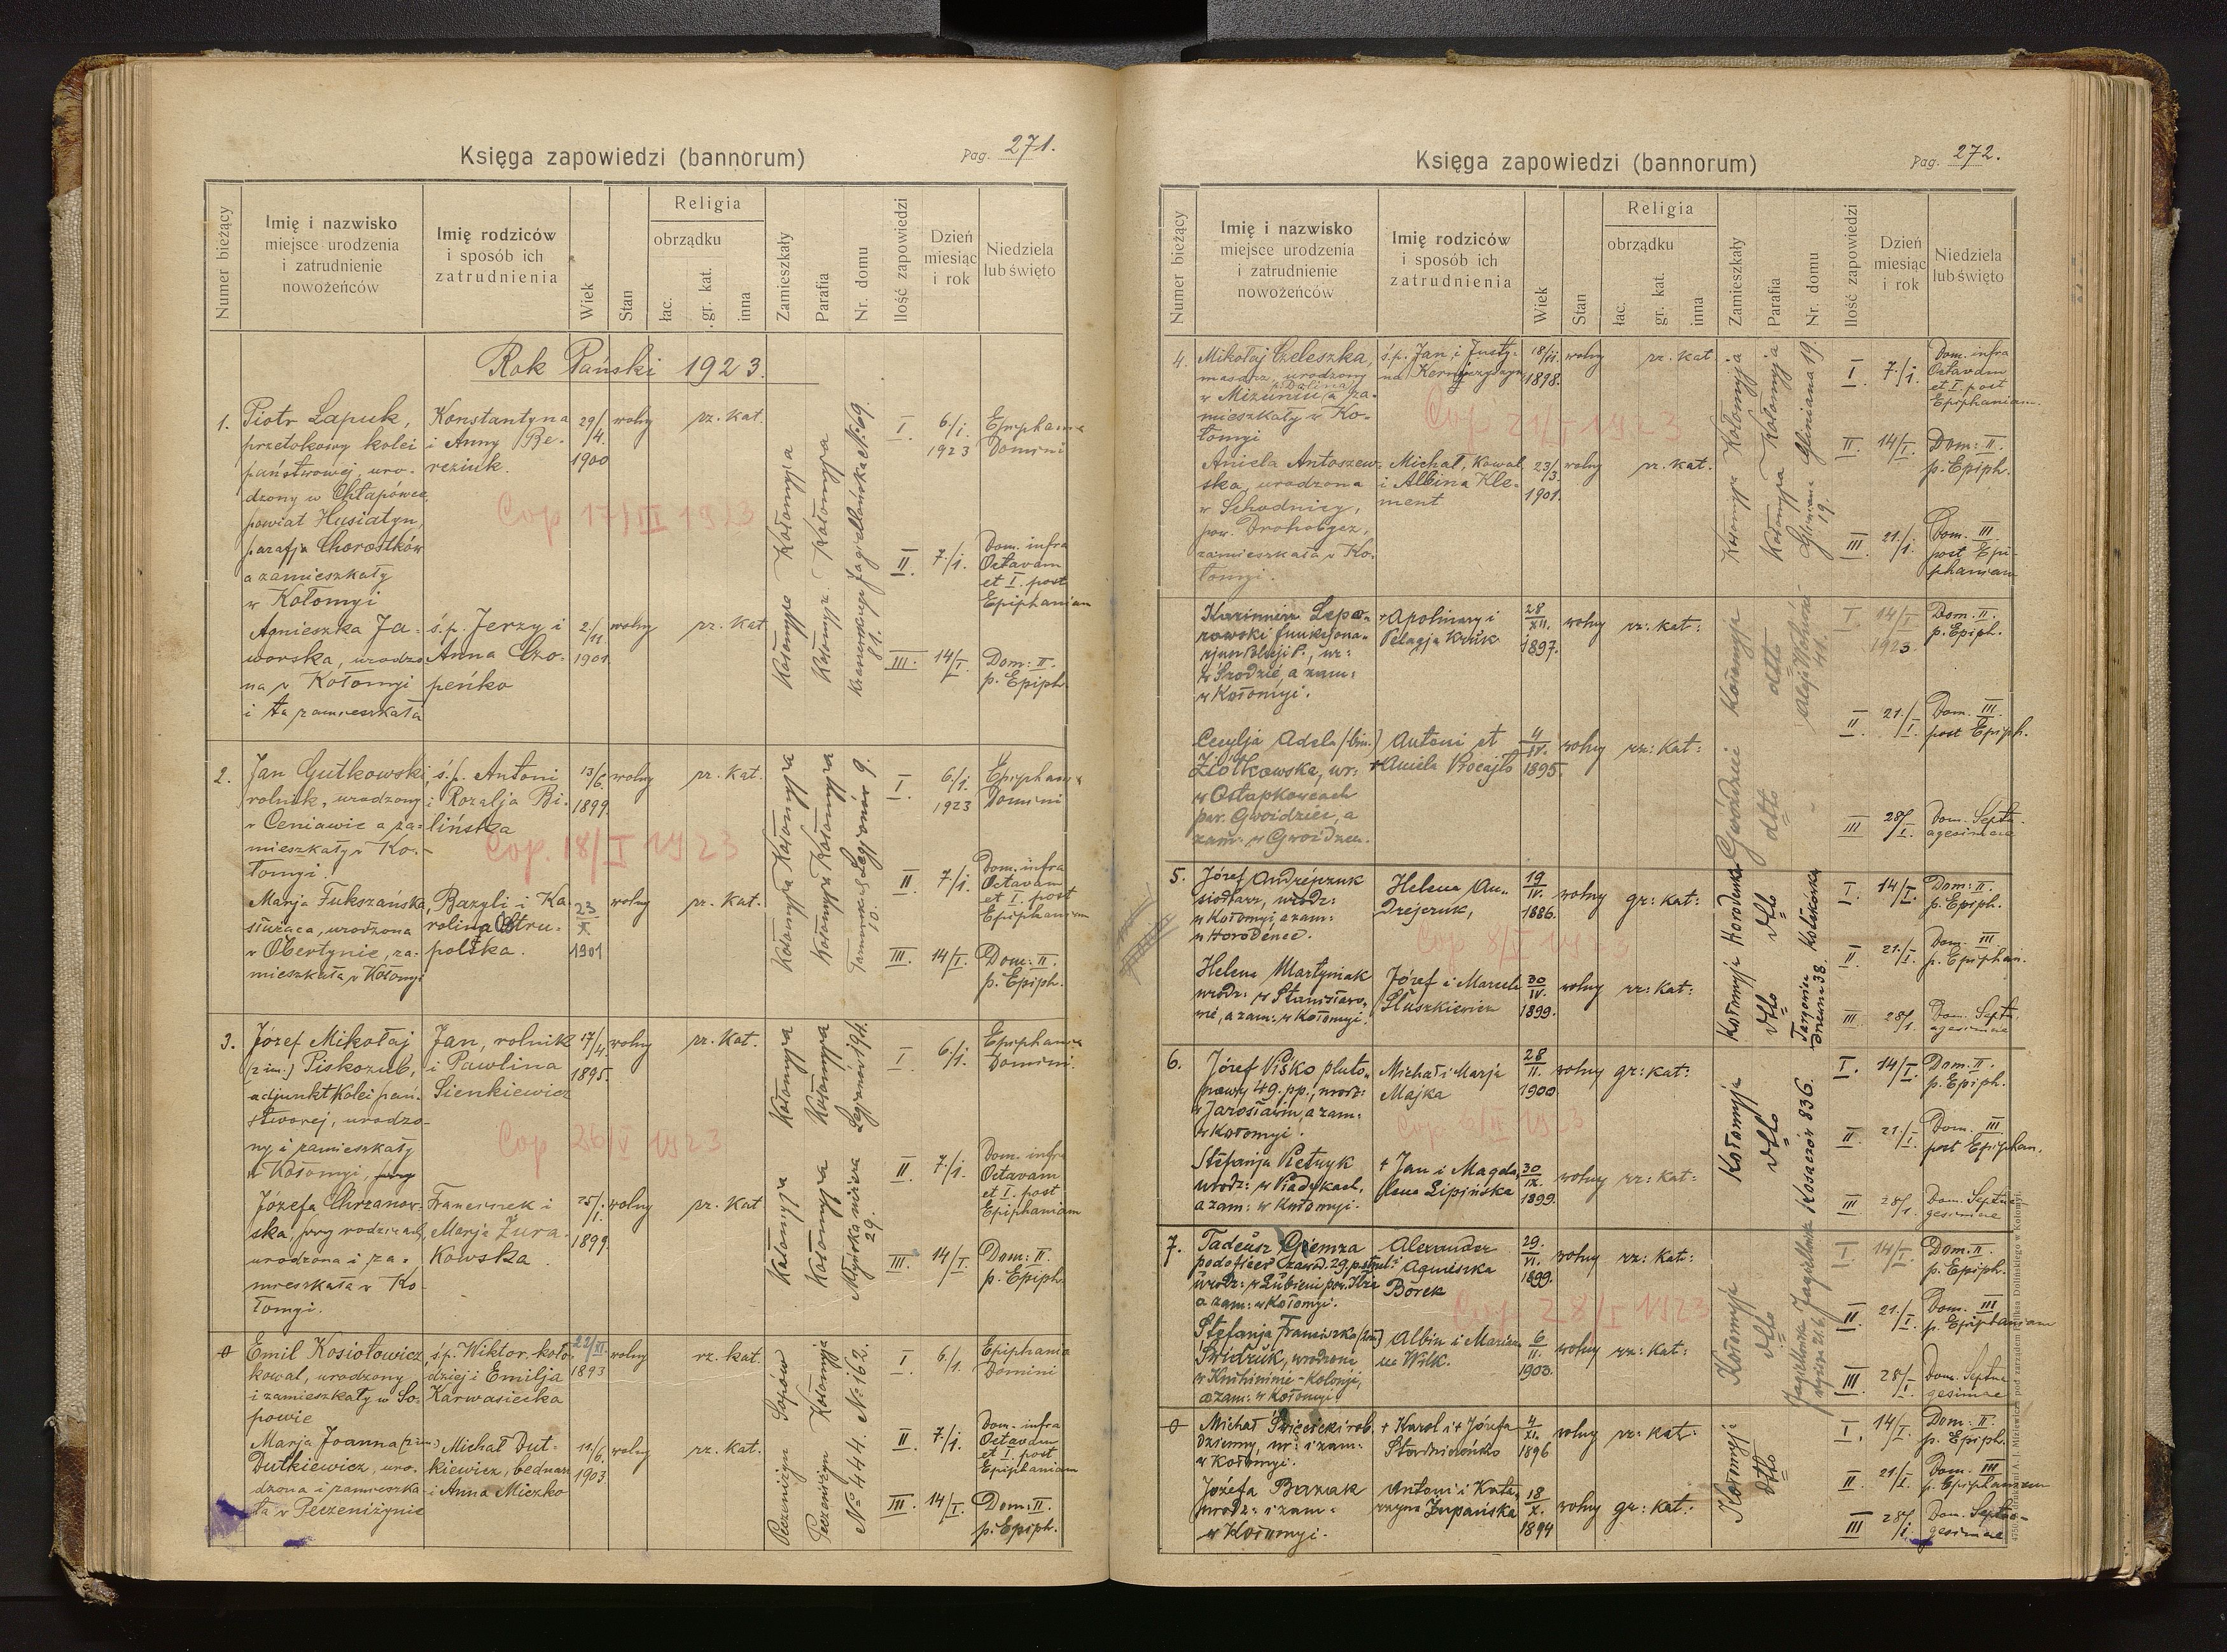 Pag. 271.
Księga zapowiedzi (bannorum)
Numer bieżący
Imię i nazwisko
miejsce urodzenia
i zatrudnienie
nowożeńców
Imię rodziców
i sposób ich
zatrudnienia
Wiek
Stan
Religia
obrządku
łac.
gr. kat.
inna
Zamieszkały
Parafia
Nr. domu
Ilość zapowiedzi
Dzień
miesiąc
i rok
Niedziela
lub święto
Rok Pański 1923.
1.
Piotr Łapuk,
przetokowy kolei
państwowej, uro-
dzony w Chłapówce,
powiat Husiatyn,
parafja Chorostków
a zamieszkały
w Kołomyi
Konstantyna
i Anny Be-
reziuk.
29/4.
1900
wolny
rz. kat.
Cop 17/III 1923
Agnieszka Ja-
worska, urodzo-
na w Kołomyi
i tu zamieszkała
ś.p. Jerzy i
Anna
2/11
1901
wolny
rz. kat
Kołomyja Kołomyja
Kołomyja Kołomyja
Jagiellońska № 69.
81.
I
6/I.
1923
Epiphania
Domini
II
7/I.
Dom. infra
Octavam
et I. post
Epiphaniam
III.
14/I.
Dom: II.
p. Epiph.
2.
Jan Gutkowski,
rolnik, urodzony
w Ceniawie a za-
mieszkały w Ko-
łomyi.
ś.p. Antoni
i Rozalja Bi-
lińska
13/6.
1899.
wolny
rz. kat.
Cop. 18/I 1923
Marja Fukszańska,
służąca, urodzona
w Obertynie, za-
mieszkała w Kołomyi
Bazyli i Ka-
rolina Ostru-
polska.
23
X
1901
wolny
rz. kat.
Kołomyja Kołomyja
Kołomyja Kołomyja
Legjonów 9.
10.
I
6/I.
1923
Epiphania
Domini
II
7/I.
Dom. infra
Octavam
et I. post
Epiphaniam
III.
14/I.
Dom: II.
p. Epiph.
3.
Józef Mikołaj
(2 im.) Piskozub,
adjunkt kolei pań-
stwowej, urodzo-
ny i zamieszkały
w Kołomyi
Jan, rolnik
i Pawlina
Sienkiewicz
17/4.
1895.
wolny
rz. kat.
Cop 26/V 1923
Józefa Chrzanow-
ska, przy rodzicach,
urodzona i za-
mieszkała w Ko-
łomyi.
Franciszek i
Marja Żura-
kowska.
25/1.
1899.
wolny
rz. kat
Kołomyja Kołomyja
Kołomyja Kołomyja
Legjonów 194.
Młyńska niższa
29.
I
6/I.
Epiphania
Domini.
II
7/I.
Dom. infra
Octavam
et I. post
Epiphaniam
III.
14/I.
Dom: II.
p. Epiph.
0
Emil Kosiołowicz,
kowal, urodzony
i zamieszkały w So-
powie
ś.p. Wiktor, koło-
dziej i Emilja
Karwasiecka
22/II.
1893
wolny
rz. kat.
Marja Joanna (2 im.)
Dutkiewicz, uro-
dzona i zamieszka-
ła w Peczeniżynie
Michał Dut-
kiewicz, bednarz
i Anna Miczko
11/6.
1903.
wolny
rz. kat.
Peczeniżyn Sopów
Peczeniżyn Kołomyja
№ 444. № 162.
I
6/1.
Epiphania
Domini
II
7/I.
Dom. infra
Octavam
et I. post
Epiphaniam
III.
14/I.
Dom: II.
p. Epiph.
Pag. 272.
Księga zapowiedzi (bannorum)
Numer bieżący
Imię i nazwisko
miejsce urodzenia
i zatrudnienie
nowożeńców
Imię rodziców
i sposób ich
zatrudnienia
Wiek
Stan
Religia
obrządku
łac.
gr. kat.
inna
Zamieszkały
Parafia
Nr. domu
Ilość zapowiedzi
Dzień
miesiąc
i rok
Niedziela
lub święto
4.
Mikołaj Czeleszka,
masarz, urodzony
w Mizuniu a za-
mieszkały w Ko-
łomyi
ś.p. Jan i Justy-
na
1898.
wolny
rz. kat.
Cop 21/I 1923
Aniela Antoszew-
ska, urodzona
w Schodnicy,
pow. Drohobycz,
zamieszkała w Ko-
łomyi.
Michał, kowal
i Albina Kle-
ment
23/3.
1901.
wolny
rz. kat.
Kołomyja Kołomyja
Kołomyja Kołomyja
Gliniana Gliniana 19.
19.
I
7/I.
Dom. infra
Octavam
et I. post
Epiphaniam.
II.
14/I.
Dom: II.
p. Epiph.
III
21/I.
Dom. III
post Epi-
phaniam
Kazimierz Lepa-
rowski funkcjona-
rjusz Policji P., ur:
w Środzie, a zam:
w Kołomyi.
+ Apolinary i
Pelagja Kruk
28
XII.
1897.
wolny
rz: kat:
Cecylja Adela (2 im.)
Ziółkowska, ur:
w Ostapkowcach
pow. Gwoździec, a
zam: w Gwoźdźcu.
Antoni et
+ Aniela Rocajło
4
IV.
1895.
wolny
rz: kat:
Gwoździec Kołomyja
dtto dtto
Aleja Wolności
41.
I.
14/I
1923
Dom: II.
p. Epiph.
II
21./I.
Dom. III.
post Epiph.
III
28/I.
Dom. Septu-
agesimae
5.
Józef Andrejczuk
siodlarz, urodz:
w Kołomyi, a zam:
w Horodence.
Helena An-
drejczuk,
19
IV.
1886.
wolny
gr: kat:
Cop 8/V 1923
Helena Martyniak
urodz: w Stanisławo-
wie, a zam: w Kołomyi.
Józef i Marcela
Śluszkiewicz
30
IV.
1899.
wolny
rz: kat:
Kołomyja Horodenka
dtto dtto
Targowica
drzewna 38. Kotikówka
I.
14/I.
Dom: II.
p. Epiph.
II
21./I.
Dom. III
p. Epiphan.
III
28/1.
Dom. Septu-
agesimae
6.
Józef Piśko pluto-
nowy 49. pp., urodz:
w Jarosławiu, a zam:
w Kołomyi.
Michał i Marja
Majka
28
II.
1900
wolny
gr: kat:
Cop 6/II 1923
Stefanja Pietnyk
urodz: w Piadykach,
a zam: w Kołomyi.
+ Jan i Magda-
lena Lipińska
30
IX.
1899.
wolny
rz: kat:
Kołomyja
dtto
Kosaczów 836.
I.
14/I.
Dom: II.
p. Epiph.
II
21./I.
Dom. III.
post Epiphan.
III
28/1.
Dom. Septua-
gesimae
7.
Tadeusz Giemza
podoficer zawod. 29.
urodz: w Lubieni pow. Iłża
a zam: w Kołomyi.
Alexander
i Agnieszka
Borek
29.
VI.
1899.
wolny
rz: kat:
Cop 28/I 1923
Stefanja Franciszka (2 im)
Świdruk, urodzona
w Knihininie-Kolonji,
a zam: w Kołomyi
Albin i Marjan-
na Wilk.
6
II.
1903.
wolny
rz: kat:
Kołomyja
dtto
Jagiellońska Jagiellońska
I
14/I.
Dom. II.
p. Epiph.
II
21./I.
Dom. III
p. Epiphaniam
III
28/I.
Dom. Septua-
gesimae
0
Michał Święcicki rob.
dzienny, ur: i zam:
w Kołomyi.
+ Karol i + Józefa
4
XI.
1896
wolny
rz: kat:
Józefa Baziak
urodz: i zam:
w Kołomyi.
Antoni i Kata-
rzyna Żupańska
18
X.
1894
wolny
gr: kat:
Kołomyja
dtto
I.
14/I.
Dom: II.
p. Epiph.
II
21/I.
Dom. III
p. Epiphaniam
III
28/I.
Dom. Septua-
gesimae